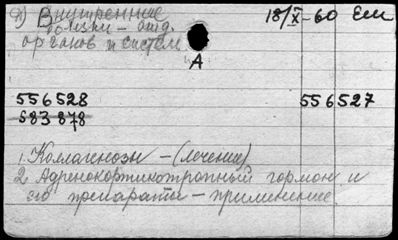 Внутренние 18/X-60 Ем
болезни - отд.
органов и систем
А
556528 556527
583878
1. Коллагенозы - (лечение)
2. Адренокортикотропный гормон и
его препараты - применение